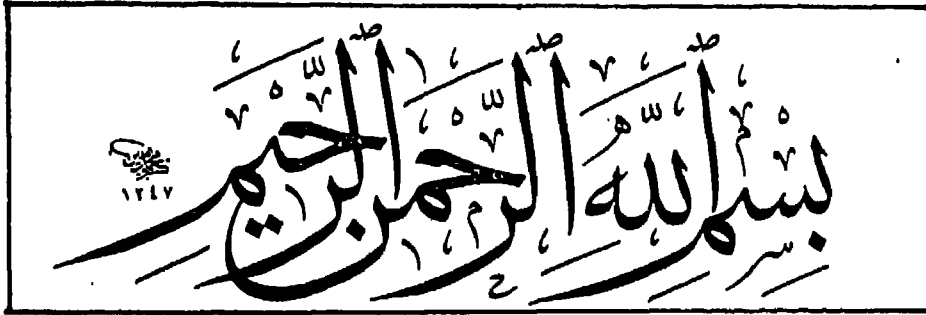 بِسْمِ اللَّهِ الرَّحْمَٰنِ الرَّحِيمِ
١٣٤٧